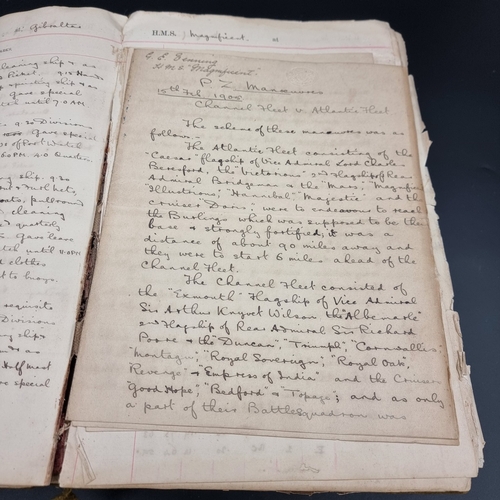 at Gibraltar
H.M.S. Magnificent. at
G. F.
H M S "Magnificent".
P. Z. Manœuvres
15th Feb 1905
Channel Fleet v Atlantic Fleet
The scheme of these manœuvres was as
follows.
The Atlantic Fleet consisting of the
"Caesar" flagship of Vice Admiral Lord Charles
Beresford, the "Victorious" 2nd flagship of Rear
Admiral Bridgeman & the "Mars", "Magnificent"
"Illustrious", "Hannibal", "Majestic" and the
cruiser "Doris", were to endeavour to reach
the Burlings which was supposed to be the
base & strongly fortified, it was a
distance of about 90 miles away and
they were to start 6 miles ahead of the
Channel Fleet.
The Channel Fleet consisted of
the "Exmouth" Flagship of Vice Admiral
Sir Arthur Knyvet Wilson the "Albemarle"
2nd Flagship of Rear Admiral Sir Richard
Poore & the "Duncan", "Triumph", "Cornwallis"
"Montagu", "Royal Sovereign", "Royal Oak",
"Revenge" & "Empress of India" and the Cruisers
"Good Hope", "Bedford" & ; and as only
a part of their Battlesquadron was
cleaning ship & as
9.15 Hands
special
until 7.0 AM
9.30 Divisions
Gave special
of Port Watch
ship. 9.30
cleaning
quarterly
Gave leave
until
clothes
to buoys.
requisite
Divisions
ship
as
Half mast
special